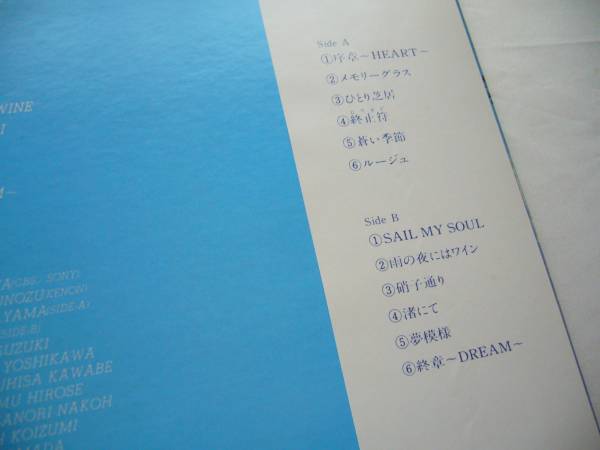 WINE
M~
(CBS/SONY)
UNOZU(KENON)
YAMA(SIDE-A)
(SIDE-B)
SUZUKI
YOSHIKAWA
UHISA KAWABE
MU HIROSE
SANORI NAKOH
H KOIZUMI
MADA
Side A
①序章~HEART~
②メモリーグラス
③ひとり芝居
④終止符
⑤蒼い季節
⑥ルージュ
Side B
①SAIL MY SOUL
②雨の夜にはワイン
③硝子通り
④渚にて
⑤夢模様
⑥終章~DREAM~